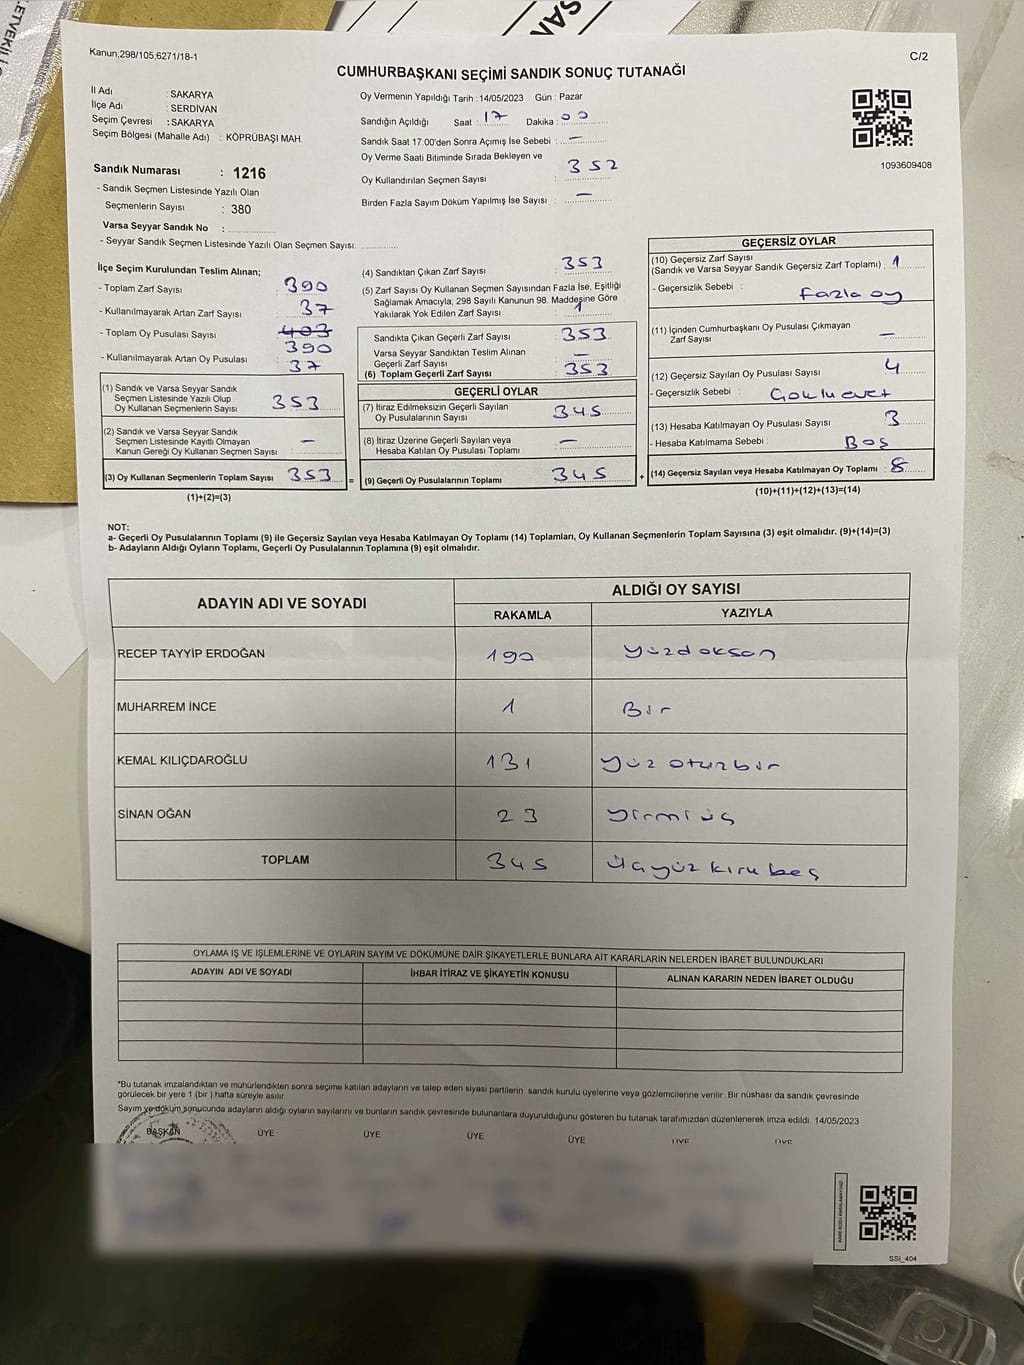 .ETVEKİLİ
SAN
Kanun;298/105,6271/18-1
C/2
CUMHURBAŞKANI SEÇİMİ SANDIK SONUÇ TUTANAĞI
İl Adı : SAKARYA
İlçe Adı : SERDİVAN
Seçim Çevresi : SAKARYA
Seçim Bölgesi (Mahalle Adı) : KÖPRÜBAŞI MAH.
Oy Vermenin Yapıldığı Tarih : 14/05/2023 Gün : Pazar
Sandığın Açıldığı Saat : 17 Dakika : 00
Sandık Saat 17.00'den Sonra Açımış İse Sebebi : —
Oy Verme Saati Bitiminde Sırada Bekleyen ve
Oy Kullandırılan Seçmen Sayısı : 352
Birden Fazla Sayım Döküm Yapılmış İse Sayısı : —
1093609408
Sandık Numarası : 1216
- Sandık Seçmen Listesinde Yazılı Olan
Seçmenlerin Sayısı : 380
Varsa Seyyar Sandık No :
- Seyyar Sandık Seçmen Listesinde Yazılı Olan Seçmen Sayısı:
İlçe Seçim Kurulundan Teslim Alınan;
- Toplam Zarf Sayısı : 390
- Kullanılmayarak Artan Zarf Sayısı : 37
- Toplam Oy Pusulası Sayısı : 403
390
- Kullanılmayarak Artan Oy Pusulası : 37
(1) Sandık ve Varsa Seyyar Sandık
Seçmen Listesinde Yazılı Olup
Oy Kullanan Seçmenlerin Sayısı : 353
(2) Sandık ve Varsa Seyyar Sandık
Seçmen Listesinde Kayıtlı Olmayan
Kanun Gereği Oy Kullanan Seçmen Sayısı : —
(3) Oy Kullanan Seçmenlerin Toplam Sayısı : 353
(1)+(2)=(3)
(4) Sandıktan Çıkan Zarf Sayısı : 353
(5) Zarf Sayısı Oy Kullanan Seçmen Sayısından Fazla İse, Eşitliği
Sağlamak Amacıyla, 298 Sayılı Kanunun 98. Maddesine Göre
Yakılarak Yok Edilen Zarf Sayısı : 1
Sandıkta Çıkan Geçerli Zarf Sayısı : 353
Varsa Seyyar Sandıktan Teslim Alınan
Geçerli Zarf Sayısı : —
(6) Toplam Geçerli Zarf Sayısı : 353
GEÇERLİ OYLAR
(7) İtiraz Edilmeksizin Geçerli Sayılan
Oy Pusulalarının Sayısı : 345
(8) İtiraz Üzerine Geçerli Sayılan veya
Hesaba Katılan Oy Pusulası Toplamı : —
= (9) Geçerli Oy Pusulalarının Toplamı : 345 +
GEÇERSİZ OYLAR
(10) Geçersiz Zarf Sayısı
(Sandık ve Varsa Seyyar Sandık Geçersiz Zarf Toplamı) : 1
- Geçersizlik Sebebi : Fazla oy
(11) İçinden Cumhurbaşkanı Oy Pusulası Çıkmayan
Zarf Sayısı : —
(12) Geçersiz Sayılan Oy Pusulası Sayısı : 4
- Geçersizlik Sebebi : Çoklu evet
(13) Hesaba Katılmayan Oy Pusulası Sayısı : 3
- Hesaba Katılmama Sebebi : Boş
(14) Geçersiz Sayılan veya Hesaba Katılmayan Oy Toplamı : 8
(10)+(11)+(12)+(13)=(14)
NOT:
a- Geçerli Oy Pusulalarının Toplamı (9) ile Geçersiz Sayılan veya Hesaba Katılmayan Oy Toplamı (14) Toplamları, Oy Kullanan Seçmenlerin Toplam Sayısına (3) eşit olmalıdır. (9)+(14)=(3)
b- Adayların Aldığı Oyların Toplamı, Geçerli Oy Pusulalarının Toplamına (9) eşit olmalıdır.
ADAYIN ADI VE SOYADI ALDIĞI OY SAYISI
RAKAMLA YAZIYLA
RECEP TAYYİP ERDOĞAN 190 Yüzdoksan
MUHARREM İNCE 1 Bir
KEMAL KILIÇDAROĞLU 131 Yüz otuzbir
SİNAN OĞAN 23 Yirmi üç
TOPLAM 345 Üçyüz kırk beş
OYLAMA İŞ VE İŞLEMLERİNE VE OYLARIN SAYIM VE DÖKÜMÜNE DAİR ŞİKAYETLERLE BUNLARA AİT KARARLARIN NELERDEN İBARET BULUNDUKLARI
ADAYIN ADI VE SOYADI İHBAR İTİRAZ VE ŞİKAYETİN KONUSU ALINAN KARARIN NEDEN İBARET OLDUĞU
*Bu tutanak imzalandıktan ve mühürlendikten sonra seçime katılan adayların ve talep eden siyasi partilerin sandık kurulu üyelerine veya gözlemcilerine verilir. Bir nüshası da sandık çevresinde
görülecek bir yere 1 (bir) hafta süreyle asılır.
Sayım ve döküm sonucunda adayların aldığı oyların sayılarını ve bunların sandık çevresinde bulunanlara duyurulduğunu gösteren bu tutanak tarafımızdan düzenlenerek imza edildi. 14/05/2023
BAŞKAN ÜYE ÜYE ÜYE ÜYE ÜYE ÜYE
SSI_404